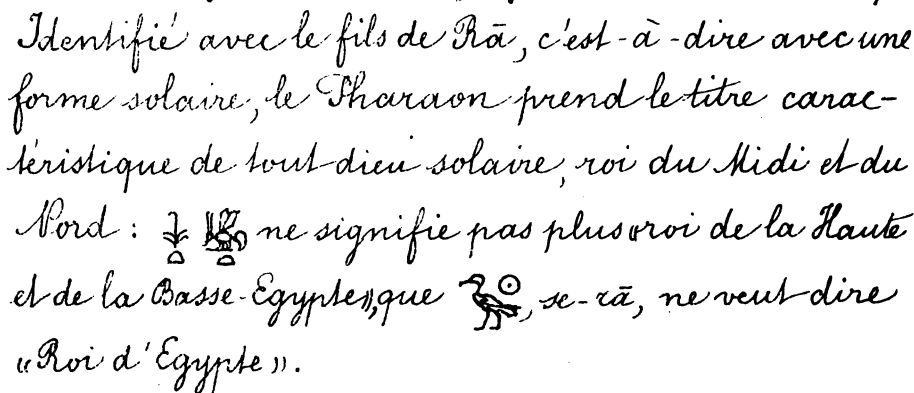 Identifié avec le fils de Rā, c'est-à-dire avec une
forme solaire, le Pharaon prend le titre carac-
téristique de tout dieu solaire, roi du Midi et du
Nord : 𓇓𓏏𓆤𓏏 ne signifie pas plus «roi de la Haute
et de la Basse-Egypte», que 𓅭𓇳, se-rā, ne veut dire
«Roi d'Egypte».